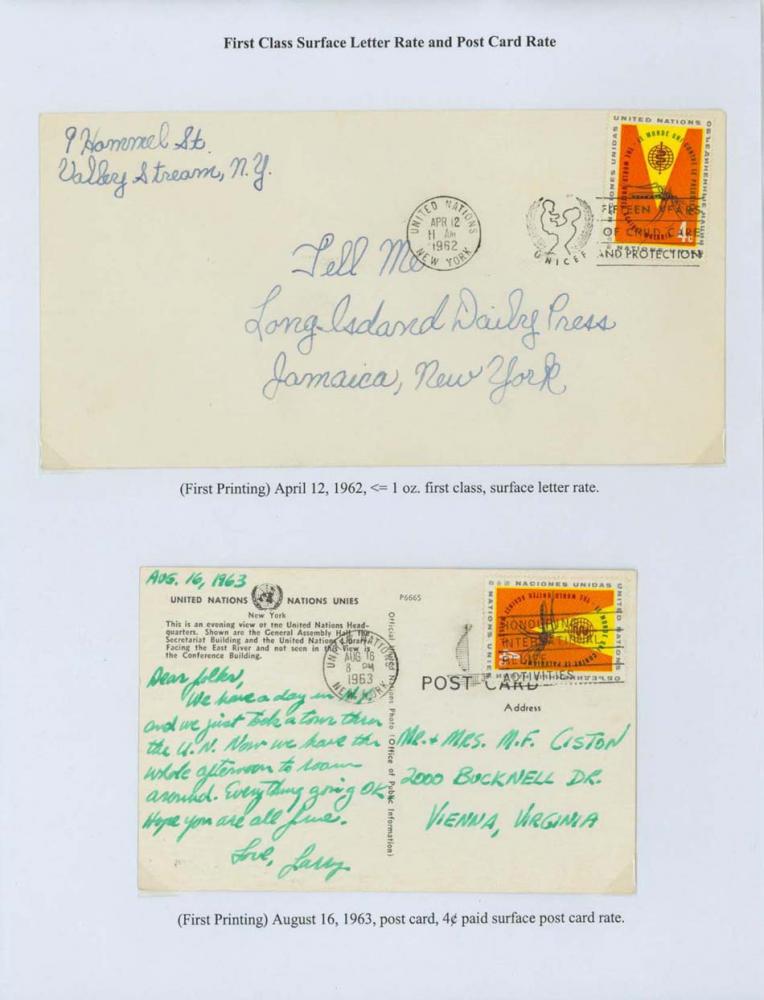 First Class Surface Letter Rate and Post Card Rate
9 Hammel St.
Valley Stream, N.Y.
UNITED NATIONS
NACIONES UNIDAS
ОБЪЕДИНЕННЫЕ НАЦИИ
LE MONDE UNI CONTRE LE PALUDISME
THE WORLD UNITED AGAINST MALARIA
4c
UNITED NATIONS
APR 12
11 AM
1962
NEW YORK
UNICEF
FIFTEEN YEARS
OF CHILD CARE
AND PROTECTION
Tell Me
Long Island Daily Press
Jamaica, New York
(First Printing) April 12, 1962, <= 1 oz. first class, surface letter rate.
AUG. 16, 1963
UNITED NATIONS NATIONS UNIES
New York
This is an evening view of the United Nations Head-
quarters. Shown are the General Assembly Hall, the
Secretariat Building and the United Nations Library.
Facing the East River and not seen in this view is
the Conference Building.
P6665
Official United Nations Photo (Office of Public Information)
NACIONES UNIDAS
UNITED NATIONS
NATIONS UNIES
UNITED NATIONS
AUG 16
8 PM
1963
NEW YORK
HONOURING
INTERNATIONAL
RELIEF
ACTIVITIES
POST CARD
Address
Dear folks,
We have a day in N.Y.
and we just took a tour thru
the U.N. Now we have the
whole afternoon to roam
around. Everything going OK.
Hope you are all fine.
Love, Larry
MR. + MRS. M.F. CISTON
2000 BUCKNELL DR.
VIENNA, VIRGINIA
(First Printing) August 16, 1963, post card, 4¢ paid surface post card rate.